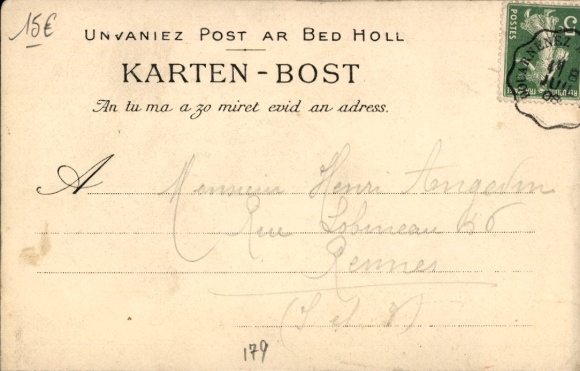 15€
UNVANIEZ POST AR BED HOLL
KARTEN-BOST
An tu ma a zo miret evid an adress.
POSTES
5
DOUARNENEZ
A Monsieur Henri
Rue Lobineau 6
Rennes
(I et V)
179